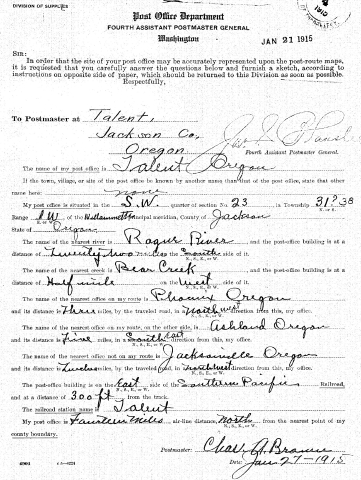 DIVISION OF SUPPLIES
Post Office Department
FOURTH ASSISTANT POSTMASTER GENERAL
Washington
JAN 21 1915
Sir:
In order that the site of your post office may be accurately represented upon the post-route maps,
it is requested that you carefully answer the questions below and furnish a sketch, according to
instructions on opposite side of paper, which should be returned to this Division as soon as possible.
Respectfully,
To Postmaster at Talent,
Jackson Co,
Oregon
Fourth Assistant Postmaster General.
The name of my post office is Talent Oregon
If the town, village, or site of the post office be known by another name than that of the post office, state that other
name here: none
My post office is situated in the S.W. quarter of section No. 23 in Township 38
Range 1W of Willammette principal meridian, County of Jackson
State of Oregon
The name of the nearest river is Rogue River and the post-office building is at a
distance of Twenty two miles on the South side of it.
The name of the nearest creek is Bear Creek and the post-office building is at a
distance of Half mile on the West side of it.
The name of the nearest office on my route is Phoenix Oregon
and its distance is Three miles, by the traveled road, in northwest direction from this, my office.
The name of the nearest office on my route, on the other side, is Ashland Oregon
and its distance is Five miles, by the traveled road, in South East direction from this, my office.
The name of the nearest office not on my route is Jacksonville Oregon
and its distance is Twelve miles, by the traveled road, in northwest direction from this, my office.
The post-office building is on the East side of the Southern Pacific Railroad,
and at a distance of 300 ft from the track.
The railroad station name is Talent
My post office is Fourteen Miles air-line distance North from the nearest point of my
county boundary.
Postmaster: Chas. A.
Date: Jan-27-1915